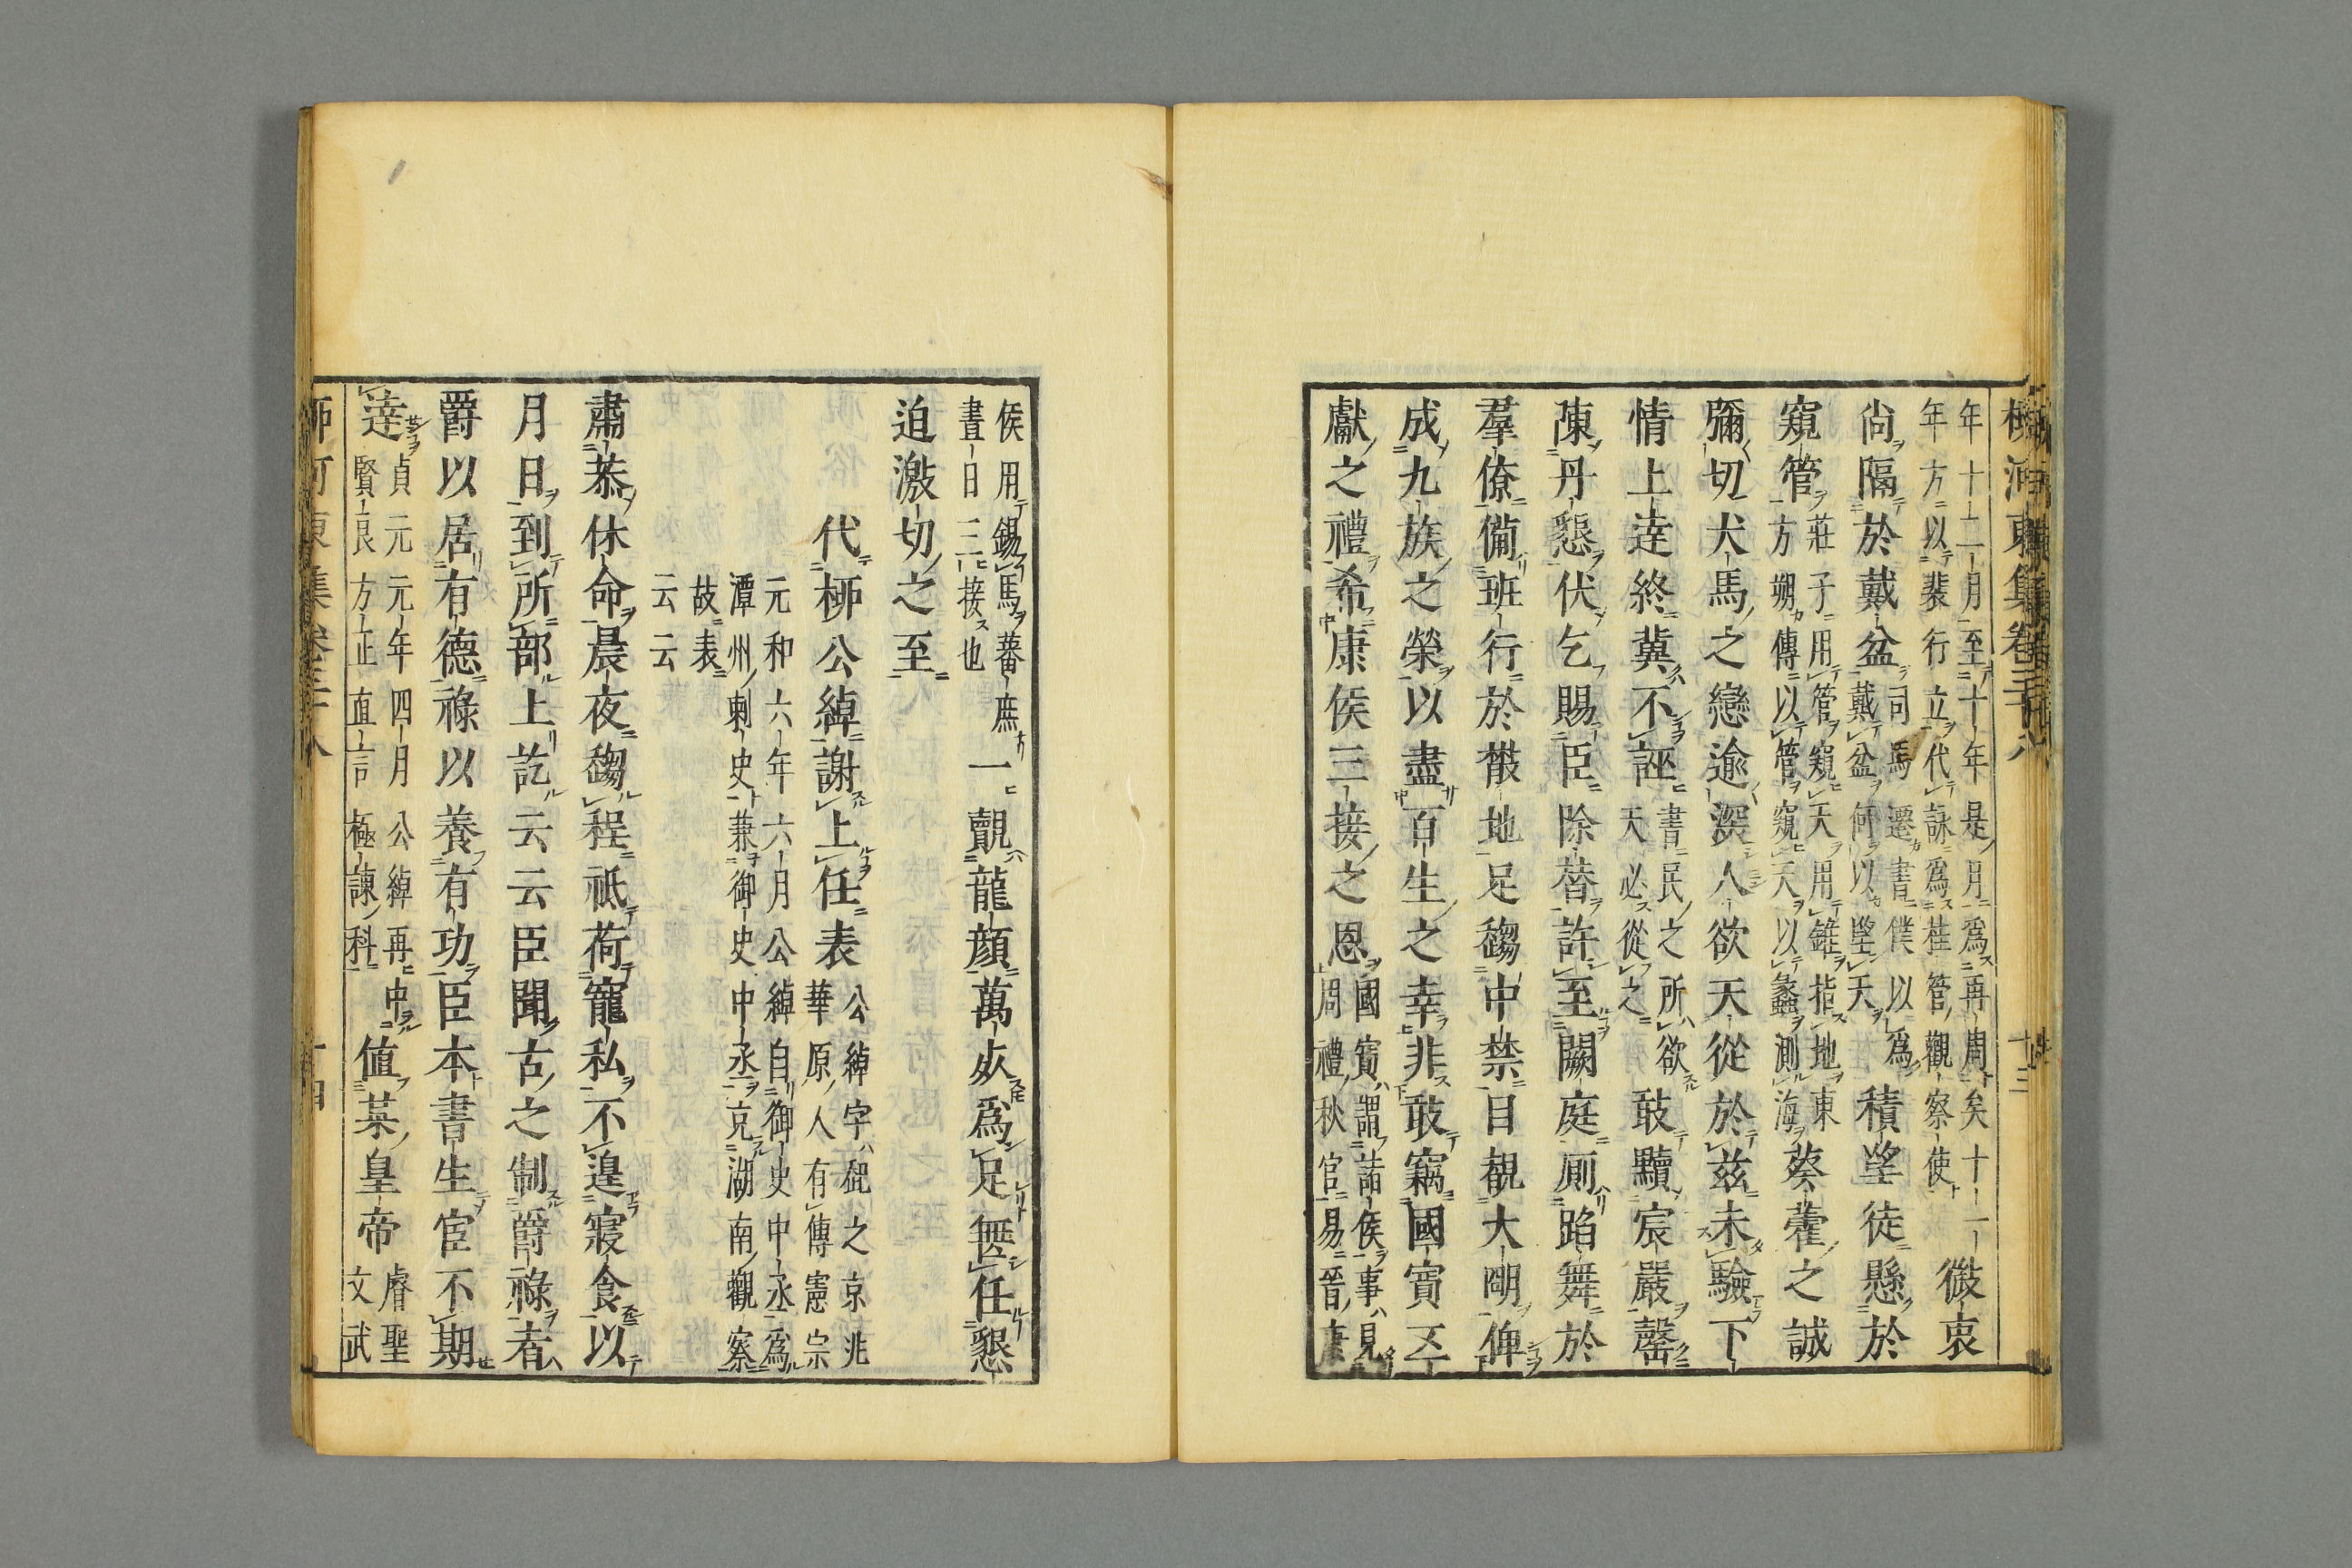 柳河東集卷三十八 十三
年十二月至十年是月爲再周矣十一
年方以裴行立代詠爲桂管觀察使
微衷
尙隔於戴盆
司馬遷書僕以爲
戴盆何以望天
積望徒懸於
窺管
莊子用管窺天用錐指地東
方朔傳以管窺天以蠡測海
葵藿之誠
彌切犬馬之戀逾深人欲天從於茲未驗下
情上達終冀不誣
書民之所欲
天必從之
敢黷宸嚴罄
陳丹懇伏乞賜臣除替許至闕庭厠蹈舞於
羣僚備班行於散地足趨中禁目覩大明俾
成九族之榮以盡百生之幸非敢竊國賓三
獻之禮希康侯三接之恩
國賓謂諸侯事見
周禮秋官易晉康
侯用錫馬蕃庶
晝日三接也
一覲龍顔萬死爲足無任懇
迫激切之至
代柳公綽謝上任表
公綽字起之京兆
華原人有傳憲宗
元和六年六月公綽自御史中丞爲
潭州刺史兼御史中丞充湖南觀察
故表
云云
肅恭休命晨夜趨程祗荷寵私不遑寢食以
月日到所部上訖云云臣聞古之制爵祿者
爵以居有德祿以養有功臣本書生宦不期
達
貞元元年四月公綽再中
賢良方正直言極諫科
値某皇帝
睿聖
文武
柳河東集卷三十八 十四